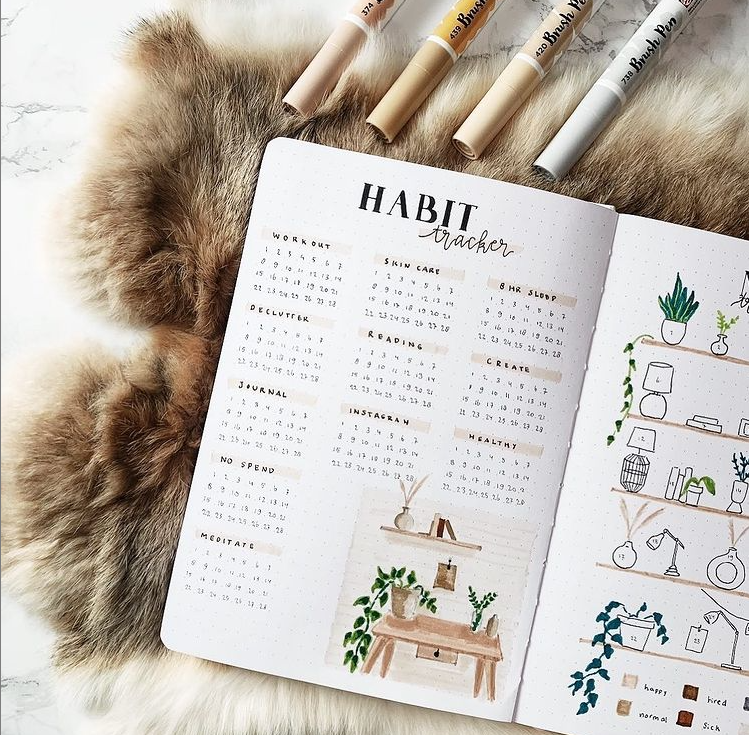 374
439 Brush
420 Brush Pen
738 Brush Pen
HABIT
tracker
WORKOUT
1 2 3 4 5 6 7
8 9 10 11 12 13 14
15 16 17 18 19 20 21
22 23 24 25 26 27 28
DECLUTTER
1 2 3 4 5 6 7
8 9 10 11 12 13 14
15 16 17 18 19 20 21
22 23 24 25 26 27 28
JOURNAL
1 2 3 4 5 6 7
8 9 10 11 12 13 14
15 16 17 18 19 20 21
22 23 24 25 26 27 28
NO SPEND
1 2 3 4 5 6 7
8 9 10 11 12 13 14
15 16 17 18 19 20 21
22 23 24 25 26 27 28
MEDITATE
1 2 3 4 5 6 7
8 9 10 11 12 13 14
15 16 17 18 19 20 21
22 23 24 25 26 27 28
SKIN CARE
1 2 3 4 5 6 7
8 9 10 11 12 13 14
15 16 17 18 19 20 21
22 23 24 25 26 27 28
READING
1 2 3 4 5 6 7
8 9 10 11 12 13 14
15 16 17 18 19 20 21
22 23 24 25 26 27 28
INSTAGRAM
1 2 3 4 5 6 7
8 9 10 11 12 13 14
15 16 17 18 19 20 21
22 23 24 25 26 27 28
8 HR SLEEP
1 2 3 4 5 6 7
8 9 10 11 12 13 14
15 16 17 18 19 20 21
22 23 24 25 26 27 28
CREATE
1 2 3 4 5 6 7
8 9 10 11 12 13 14
15 16 17 18 19 20 21
22 23 24 25 26 27 28
HEALTHY
1 2 3 4 5 6 7
8 9 10 11 12 13 14
15 16 17 18 19 20 21
22 23 24 25 26 27 28
12
22
23
happy
tired
normal
sick